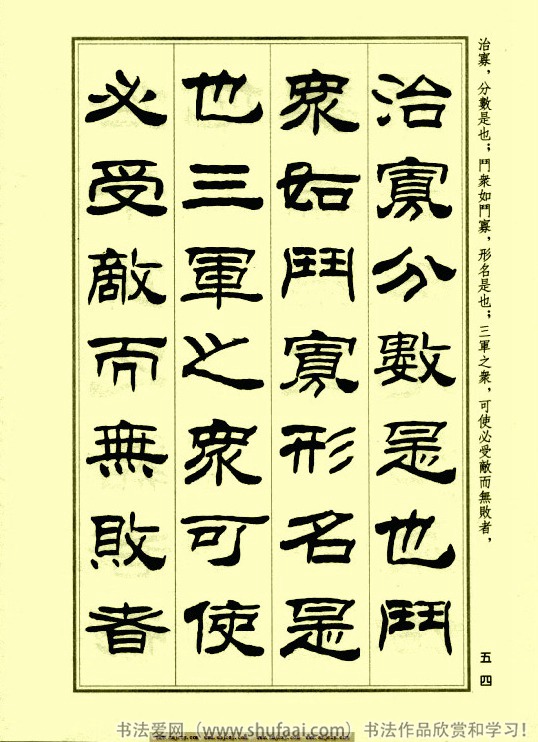 治寡，分數是也；鬥衆如鬥寡，形名是也；三軍之衆，可使必受敵而無敗者，
治寡分數是也鬥
衆如鬥寡形名是
也三軍之衆可使
必受敵而無敗者
五四
书法爱网（www.shufaai.com）书法作品欣赏和学习！